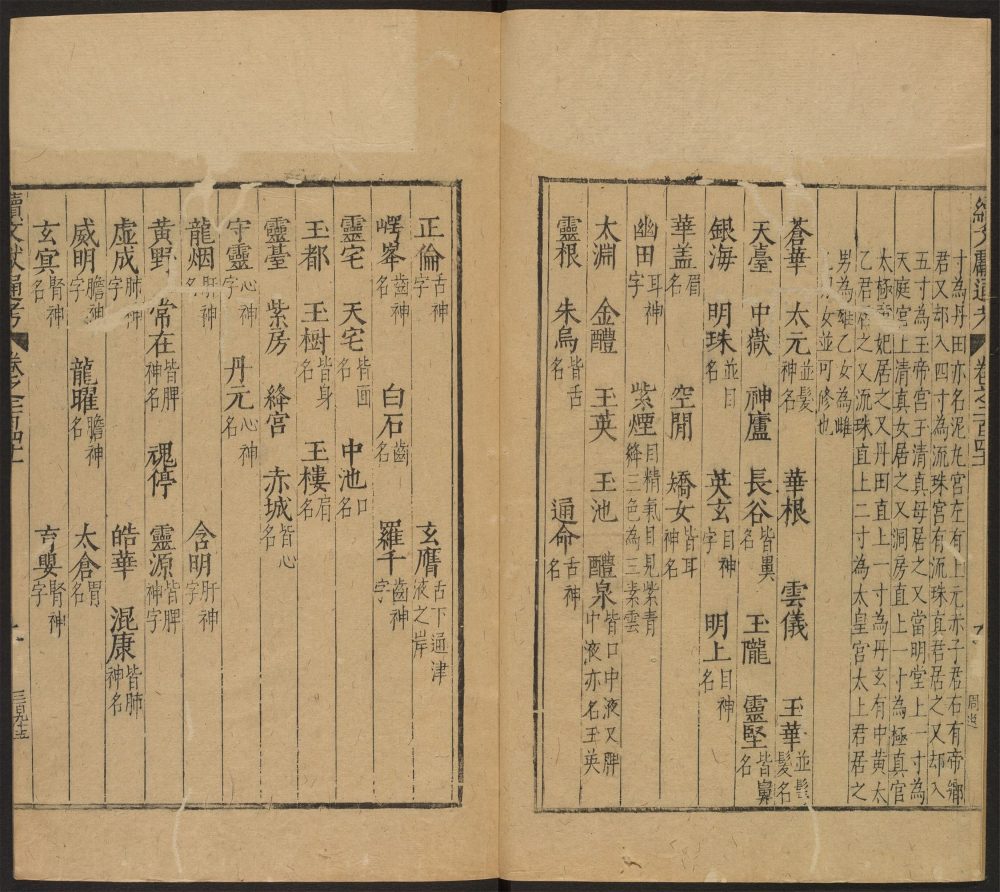 寸為丹田亦名泥丸宮左有上元赤子君右有帝鄉
君又却入四寸為流珠宮有流珠真君居之又却入
五寸為玉帝宮玉清真母居之又當明堂上一寸為
天庭宮上清真女居之又洞房直上一寸為極真宮
太極帝妃居之又丹田直上一寸為丹玄有中黃太
乙君居之又流珠直上二寸為太皇宮太上君居之
男為雄乙女為雌
男女並可修也
蒼華 太元並髮神名 華根 雲儀 玉華並髮髮名
天臺 中嶽 神廬 長谷皆鼻名 玉隴 靈堅皆鼻名
銀海 明珠並目名 英玄目神字 明上目神名
華蓋眉名 空閒 嬌女皆耳神名
幽田耳神字 紫煙目精氣目見紫青絳三色為三素雲
太淵 金醴 玉英 玉池 醴泉皆口中液又脾中液亦名玉英
靈根 朱烏皆舌名 通命舌神名
正倫舌神字 玄膺舌下通津液之岸
崿峯齒神名 白石齒名 羅千齒神字
靈宅 天宅皆面名 中池口名
玉都 玉樹皆身名 玉樓肩名
靈臺 紫房 絳宮 赤城皆心名
守靈心神字 丹元心神名
龍烟肝神名 含明肝神字
黃野 常在皆脾神名 魂停 靈源皆脾神字
虛成肺神字 皓華 混康皆肺神名
威明膽神字 龍曜膽神名 太倉胃名
玄冥腎神名 育嬰腎神字
續文獻通考 卷之二百四十